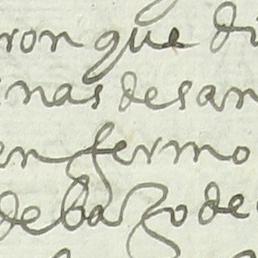 ron que di
inas desan
enfermo
debazo de